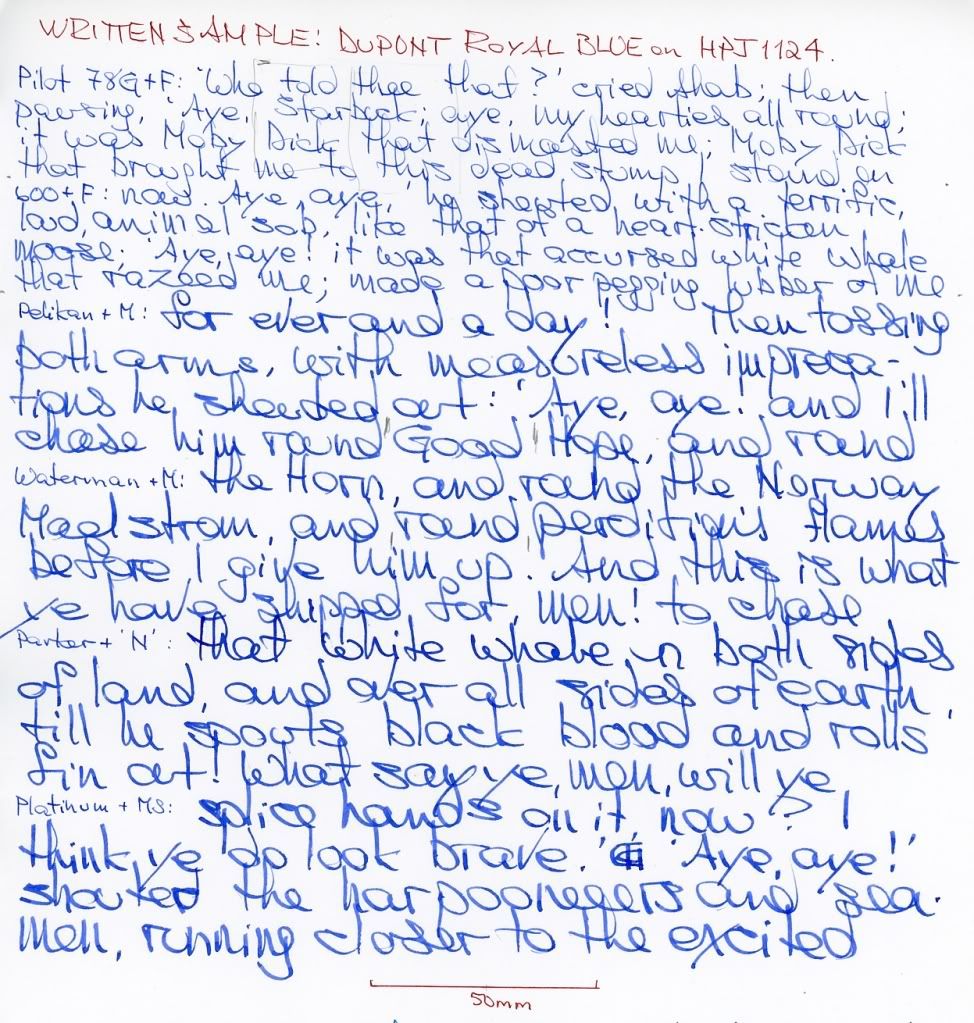 WRITTEN SAMPLE: DUPONT ROYAL BLUE on HPJ1124.
Pilot 78G+F: 'Who told thee that?' cried Ahab; then
pausing, 'Aye, Starbuck; aye, my hearties all round;
it was Moby Dick that dismasted me; Moby Dick
that brought me to this dead stump I stand on
600+F: now. Aye, aye,' he shouted with a terrific,
loud, animal sob, like that of a heart-stricken
moose; 'Aye, aye! it was that accursed white whale
that razeed me; made a poor pegging lubber of me
Pelikan + M: for ever and a day!' Then tossing
both arms, with measureless impreca-
tions he shouted out: 'Aye, aye! and I'll
chase him round Good Hope, and round
Waterman + M: the Horn, and round the Norway
Maelstrom, and round perdition's flames
before I give him up. And this is what
ye have shipped for, men! to chase
Parker + 'N': that white whale on both sides
of land, and over all sides of earth,
till he spouts black blood and rolls
fin out! What say ye, men, will ye
Platinum + MS: splice hands on it, now? I
think ye do look brave.' 'Aye, aye!'
shouted the harpooneers and sea-
men, running closer to the excited
50mm